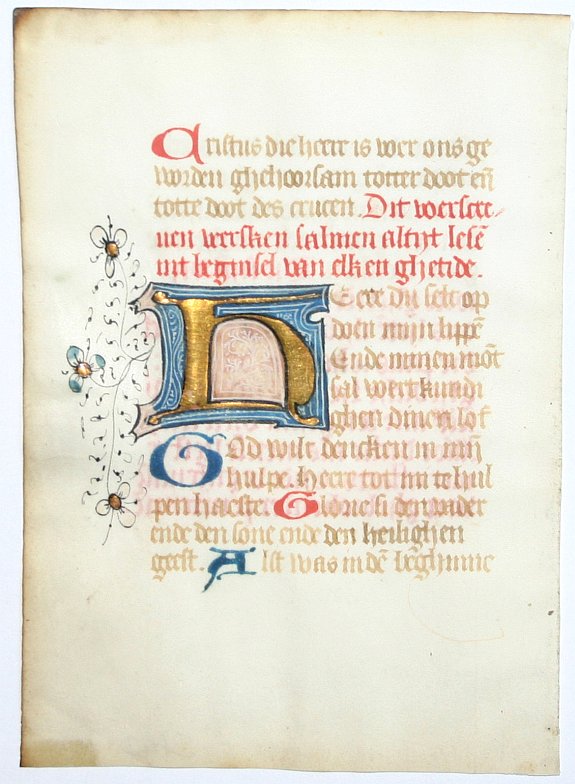 Cristus die heere is voer ons ge
worden ghehoorsam totter doot eñ
totte doot des crucen. Dit voerscre/
uen versken salmen altijt lesē
int beginsel van elken ghetide.
Heere du selt op
doen mijn lippē
Ende minen mōt
sal vert kundi
ghen dinen lof
God wilt dencken in mijn
hulpe. Heere tot mi te hul
pen haeste. Glorie si den vader
ende den sone ende den heilighen
geest. Alst was in dē beghinne